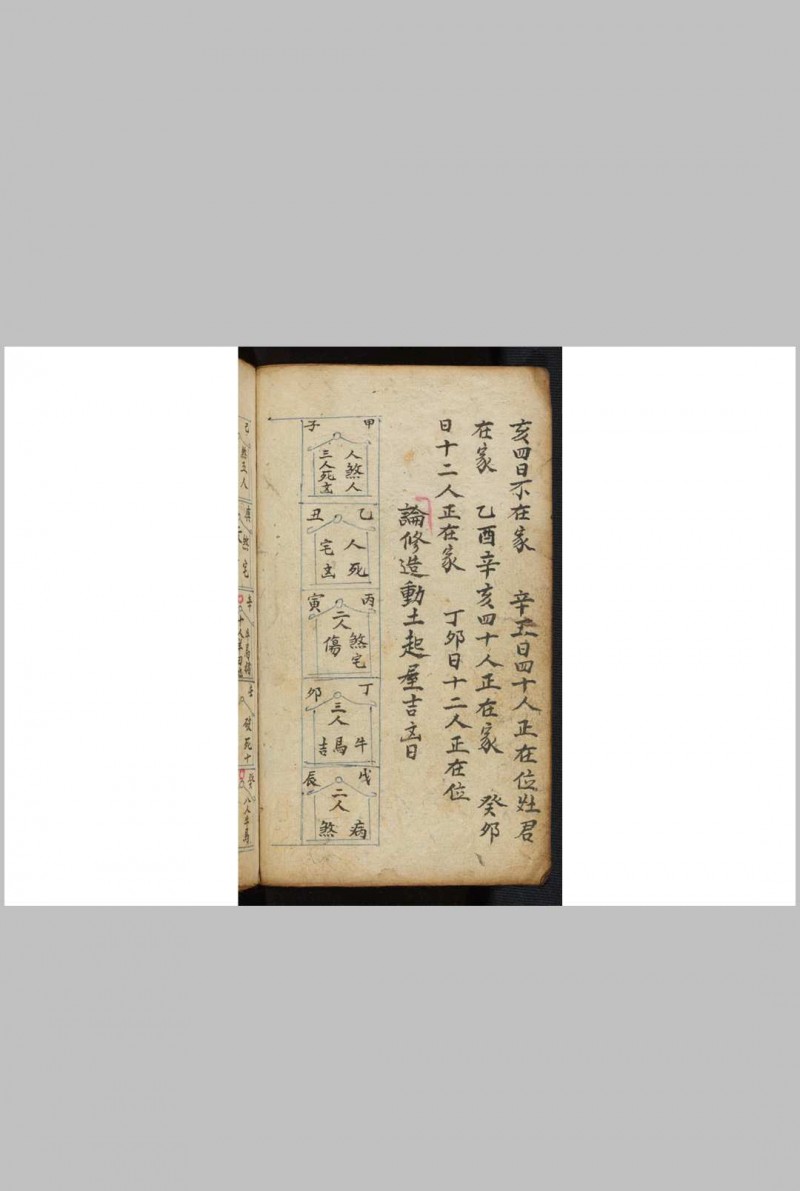 亥四日不在家　辛丑日四十人正在位灶君
在家　乙酉辛亥四十人正在家　癸卯
日十二人正在家　丁卯日十二人正在位
論修造動土起屋吉凶日
甲子
人煞人
三人死凶
乙丑
人死
宅凶
丙寅
煞宅
二人
傷
丁卯
牛
三人
馬
吉
戊辰
病
二人
煞
己
煞三人
庚
煞宅
辛
壬
破死十
癸
八人牛馬